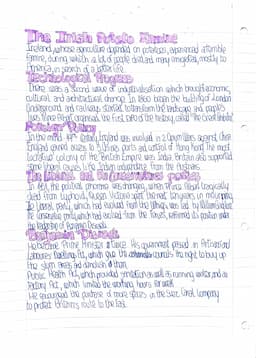 The Irish Potato Famine
Ireland, whose agriculture depended on potatoes, experienced a terrible
famine, during which a lot of people died and many emigrated, mostly to
America, in search of a better life.
Technological Progress
There was a second wave of industrialisation which brought economic,
cultural and architectural change. In 1860 began the building of London
Underground and railways started to transform the landscape and people's
lives. Prince Albert organised the first expo of the history, called "the Great Exhibition"
Foreign Policy
In the mid 19th century England was involved in 2 Opium Wars against China.
England gained access to 5 Chinese ports and control of Hong Kong. The most
lucrative colony of the British Empire was India. Britain also supported
some liberal causes like Italian independence from the Austrians.
The liberal and the conservatives parties
In 1861, the political panorama was changing, when Prince Albert tragically
died from typhoid, Queen Victoria spent the next ten years in mourning.
The Liberal party, which had evolved from the Whigs, was led by William Gladstone.
The conservative party, which had evolved from the Tories, reformed its position under
the leadership of Benjamin Disraeli.
Benjamin Disraeli
He became Prime Minister twice. His government passed an Artisans and
Labourers Dwellings Act, which gave the councils the right to buy up
the slum areas and demolish them,
Public Health Act, which provided sanitation as well as running water, and a
Factory Act, which limited the working hours for
He encouraged the purchase of more shares in the Suez Canal Company
to protect Britain's route to the East.